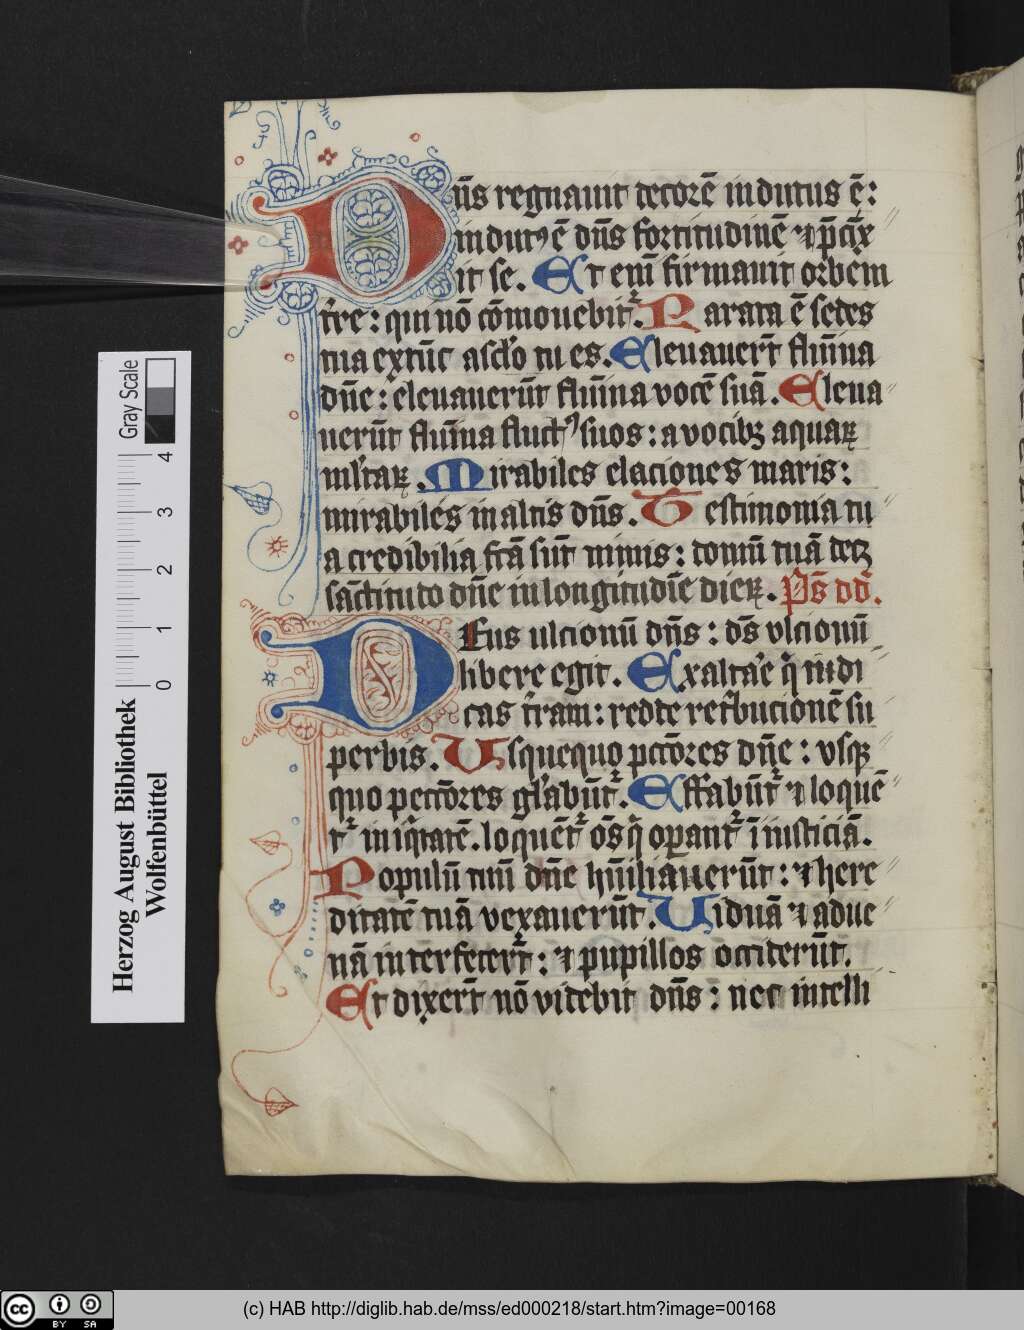 Dn̄s regnauit decorē indutus ē:
indutꝰ ē dn̄s fortitudinē ⁊ p̄cīx
it se. Et enī firmauit orbem
t̄re: qui nō cōmouebit᷑. Parata ē sedes
tua extūc a sc̄lo tu es. Eleuauer̄t flum̄a
dn̄e: eleuauerūt flum̄ina vocē suā. Eleua
uerūt flum̄ina fluctꝰ suos: a vocibꝫ aquaꝝ
ml̄taꝝ. Mirabiles elaciones maris:
mirabiles in altis dn̄s. Testimonia tu
a credibilia fc̄ā sūt nimis: domū tuā decꝫ
sāctitudo dn̄e in longitudīe dieꝝ. Ps̄ dd̄.
Deus ulcionū dn̄s: ds̄ vlcionū
libere egit. Exaltar̄e q̄ iudi
cas t̄ram: redde ret̄bucionē su
perbis. Usquequo pctōres dn̄e: vsqꝫ
quo peccōres gl̄abūt᷑. Effabūt᷑ ⁊ loquē
t᷑ iniq̄tatē. loquēt᷑ ōs q̄ oꝑant᷑ ī iusticiā.
Populū tuū dn̄e hūiliauerūt: ⁊ here
ditatē tuā vexauerūt. Uiduā ⁊ adue
nā interfecer̄t: ⁊ pupillos occiderūt.
Et dixer̄t nō videbit dn̄s: nec intelli
Gray Scale
0 1 2 3 4
Herzog August Bibliothek
Wolfenbüttel
cc BY SA
(c) HAB http://diglib.hab.de/mss/ed000218/start.htm?image=00168